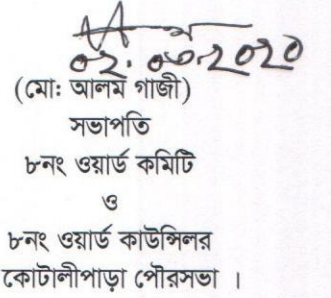 ০২.০৩.২০২০
(মো: আলম গাজী)
সভাপতি
৮নং ওয়ার্ড কমিটি
ও
৮নং ওয়ার্ড কাউন্সিলর
কোটালীপাড়া পৌরসভা ।